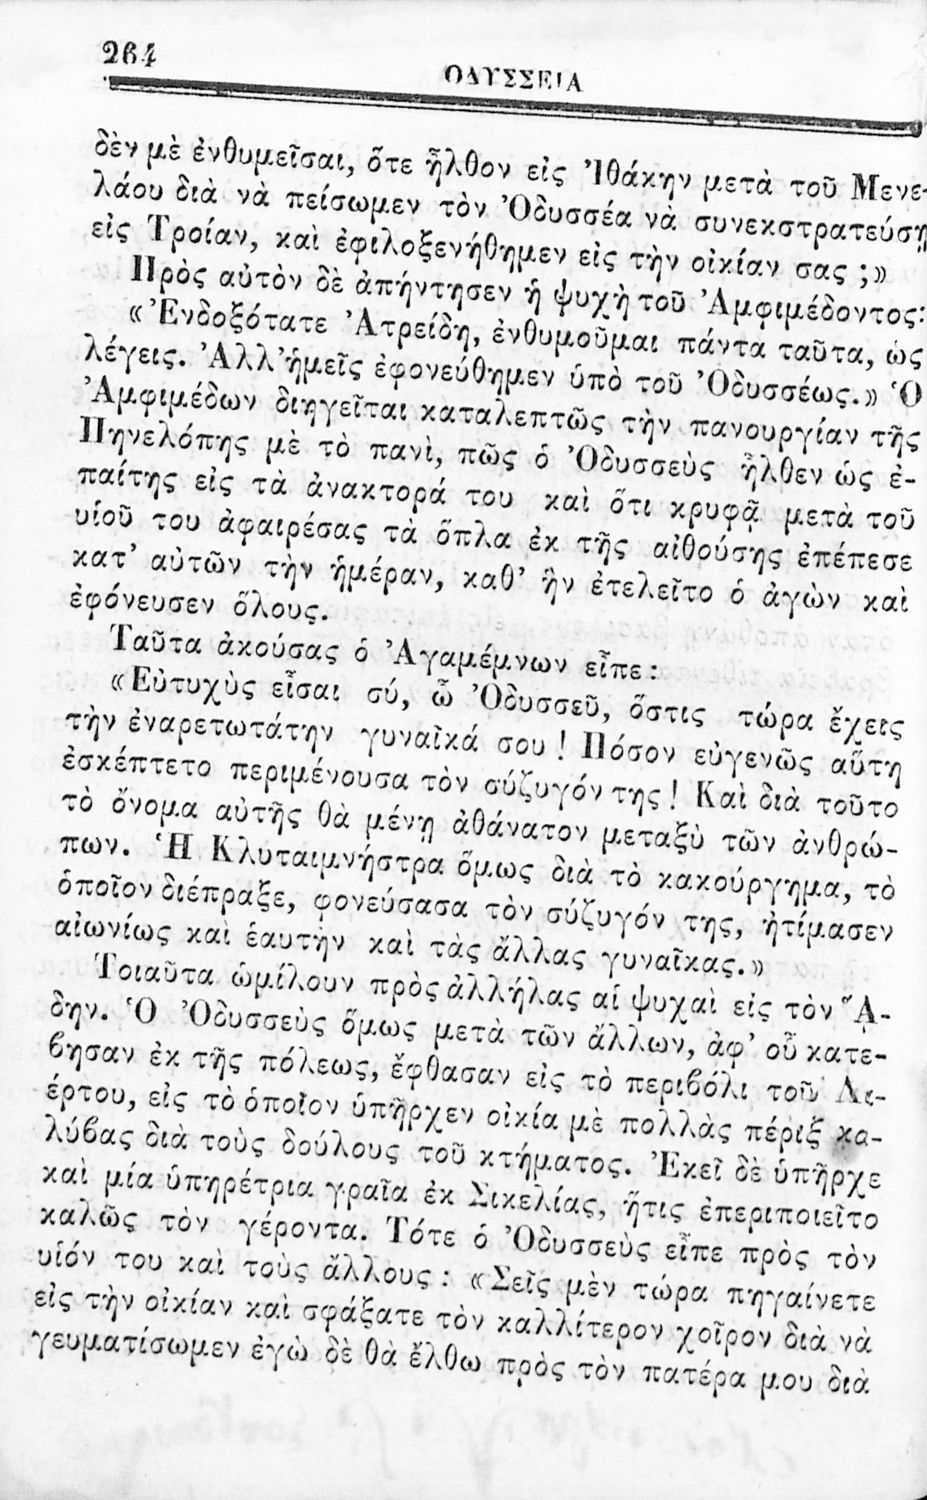 264
ΟΔΥΣΣΕΙΑ
δὲν μὲ ἐνθυμεῖσαι, ὅτε ἦλθον εἰς Ἰθάκην μετὰ τοῦ Μενε-
λάου διὰ νὰ πείσωμεν τὸν Ὀδυσσέα νὰ συνεκστρατεύσῃ
εἰς Τροίαν, καὶ ἐφιλοξενήθημεν εἰς τὴν οἰκίαν σας ;»
Πρὸς αὐτὸν δὲ ἀπήντησεν ἡ ψυχὴ τοῦ Ἀμφιμέδοντος:
«Ἐνδοξότατε Ἀτρείδη, ἐνθυμοῦμαι πάντα ταῦτα, ὡς
λέγεις. Ἀλλ' ἡμεῖς ἐφονεύθημεν ὑπὸ τοῦ Ὀδυσσέως.» Ὁ
Ἀμφιμέδων διηγεῖται καταλεπτῶς τὴν πανουργίαν τῆς
Πηνελόπης μὲ τὸ πανὶ, πῶς ὁ Ὀδυσσεὺς ἦλθεν ὡς ἐ-
παίτης εἰς τὰ ἀνακτορά του καὶ ὅτι κρυφᾷ μετὰ τοῦ
υἱοῦ του ἀφαιρέσας τὰ ὅπλα ἐκ τῆς αἰθούσης ἐπέπεσε
κατ' αὐτῶν τὴν ἡμέραν, καθ' ἣν ἐτελεῖτο ὁ ἀγὼν καὶ
ἐφόνευσεν ὅλους.
Ταῦτα ἀκούσας ὁ Ἀγαμέμνων εἶπε:
«Εὐτυχὺς εἶσαι σύ, ὦ Ὀδυσσεῦ, ὅστις τώρα ἔχεις
τὴν ἐναρετωτάτην γυναῖκά σου! Πόσον εὐγενῶς αὕτη
ἐσκέπτετο περιμένουσα τὸν σύζυγόν της! Καὶ διὰ τοῦτο
τὸ ὄνομα αὐτῆς θὰ μένῃ ἀθάνατον μεταξὺ τῶν ἀνθρώ-
πων. Ἡ Κλυταιμνήστρα ὅμως διὰ τὸ κακούργημα, τὸ
ὁποῖον διέπραξε, φονεύσασα τὸν σύζυγόν της, ἠτίμασεν
αἰωνίως καὶ ἑαυτὴν καὶ τὰς ἄλλας γυναῖκας.»
Τοιαῦτα ὡμίλουν πρὸς ἀλλήλας αἱ ψυχαὶ εἰς τὸν Ἅ-
δην. Ὁ Ὀδυσσεὺς ὅμως μετὰ τῶν ἄλλων, ἀφ' οὗ κατέ-
βησαν ἐκ τῆς πόλεως, ἔφθασαν εἰς τὸ περιβόλι τοῦ Λα-
έρτου, εἰς τὸ ὁποῖον ὑπῆρχεν οἰκία μὲ πολλὰς πέριξ κα-
λύβας διὰ τοὺς δούλους τοῦ κτήματος. Ἐκεῖ δὲ ὑπῆρχε
καὶ μία ὑπηρέτρια γραῖα ἐκ Σικελίας, ἥτις ἐπεριποιεῖτο
καλῶς τὸν γέροντα. Τότε ὁ Ὀδυσσεὺς εἶπε πρὸς τὸν
υἱόν του καὶ τοὺς ἄλλους : «Σεῖς μὲν τώρα πηγαίνετε
εἰς τὴν οἰκίαν καὶ σφάξατε τὸν καλλίτερον χοῖρον διὰ νὰ
γευματίσωμεν ἐγὼ δὲ θὰ ἔλθω πρὸς τὸν πατέρα μου διὰ